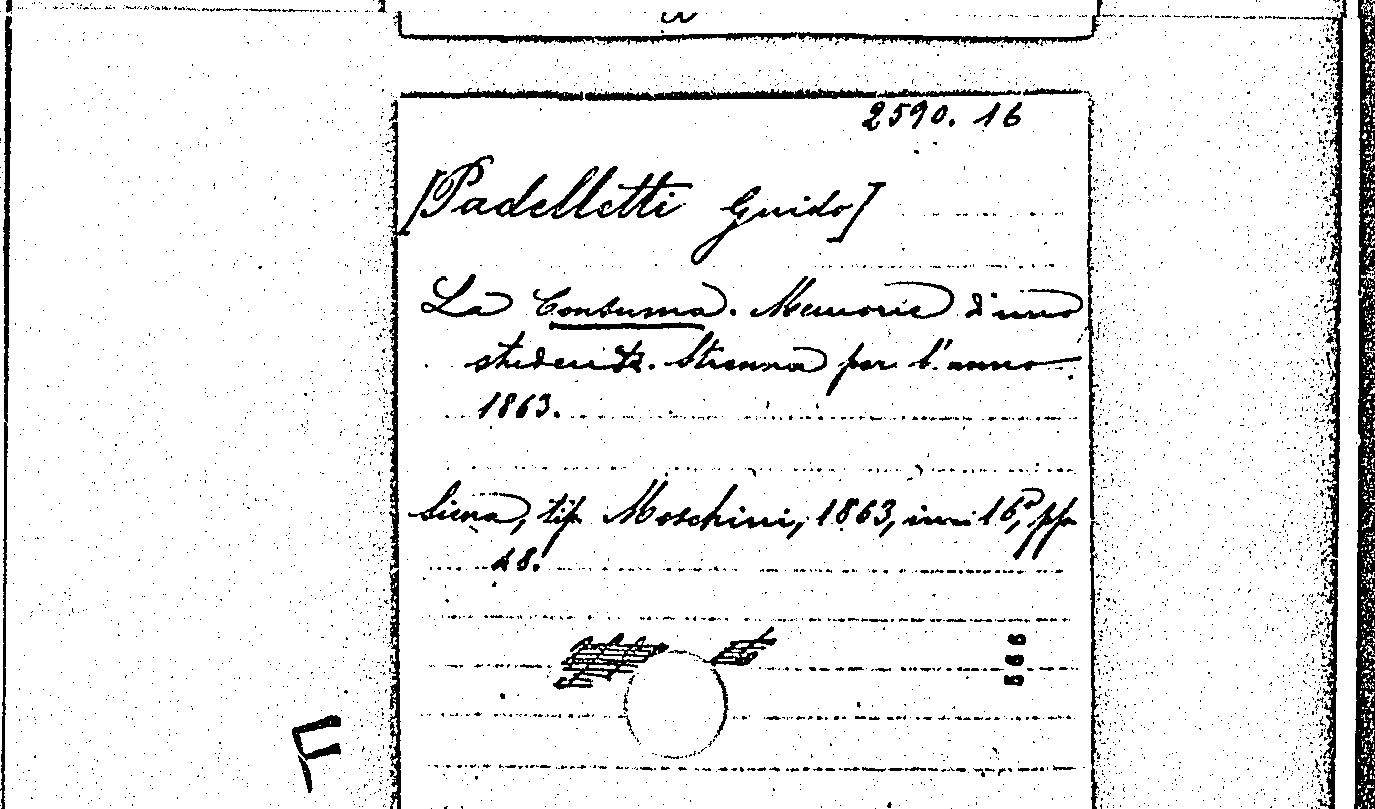 2590. 16
[Padelletti Guido]
La Consuma. Memorie d'uno
studente. Strenna per l'anno
1863.
Siena, tip. Moschini, 1863, in 16°, pp.
48.
566
F